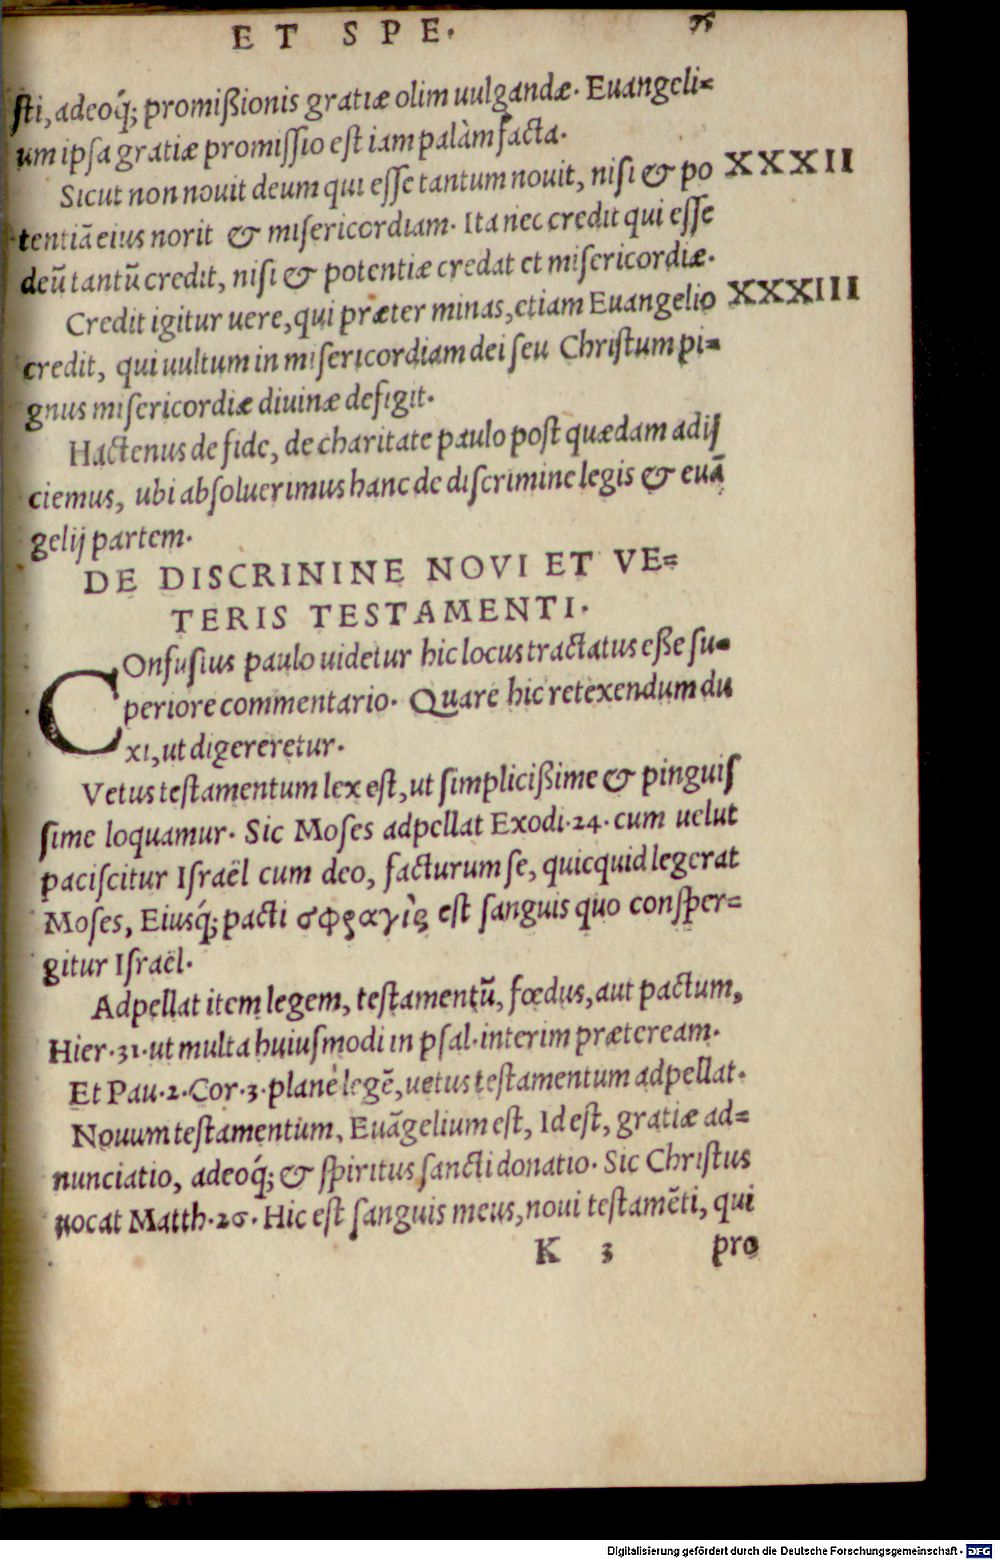 ET SPE. 75
sti, adeoq́; promißionis gratiæ olim uulgandæ. Euangeli=
um ipsa gratiæ promissio est iam palàm facta.
Sicut non nouit deum qui esse tantum nouit, nisi & po XXXII
tentiā eius norit & misericordiam. Ita nec credit qui esse
deū tantū credit, nisi & potentiæ credat et misericordiæ.
Credit igitur uere, qui præter minas, etiam Euangelio XXXIII
credit, qui uultum in misericordiam dei seu Christum pi=
gnus misericordiæ diuinæ defigit.
Hactenus de fide, de charitate paulo post quædam adij
ciemus, ubi absoluerimus hanc de discrimine legis & euā
gelij partem.
DE DISCRININE NOVI ET VE=
TERIS TESTAMENTI.
COnfusius paulo uidetur hic locus tractatus eße su=
periore commentario. Quare hic retexendum du
xi, ut digereretur.
Vetus testamentum lex est, ut simplicißime & pinguis
sime loquamur. Sic Moses adpellat Exodi.24. cum uelut
paciscitur Israël cum deo, facturum se, quicquid legerat
Moses, Eiusq́; pacti σφραγὶς est sanguis quo consper=
gitur Israël.
Adpellat item legem, testamentū, fœdus, aut pactum,
Hier.31. ut multa huiusmodi in psal. interim præteream.
Et Pau.2.Cor.3. planè legē, uetus testamentum adpellat.
Nouum testamentum, Euāgelium est, Id est, gratiæ ad=
nunciatio, adeoq́; & spiritus sancti donatio. Sic Christus
uocat Matth.26. Hic est sanguis meus, noui testamēti, qui
K 3 pro
Digitalisierung gefördert durch die Deutsche Forschungsgemeinschaft - DFG